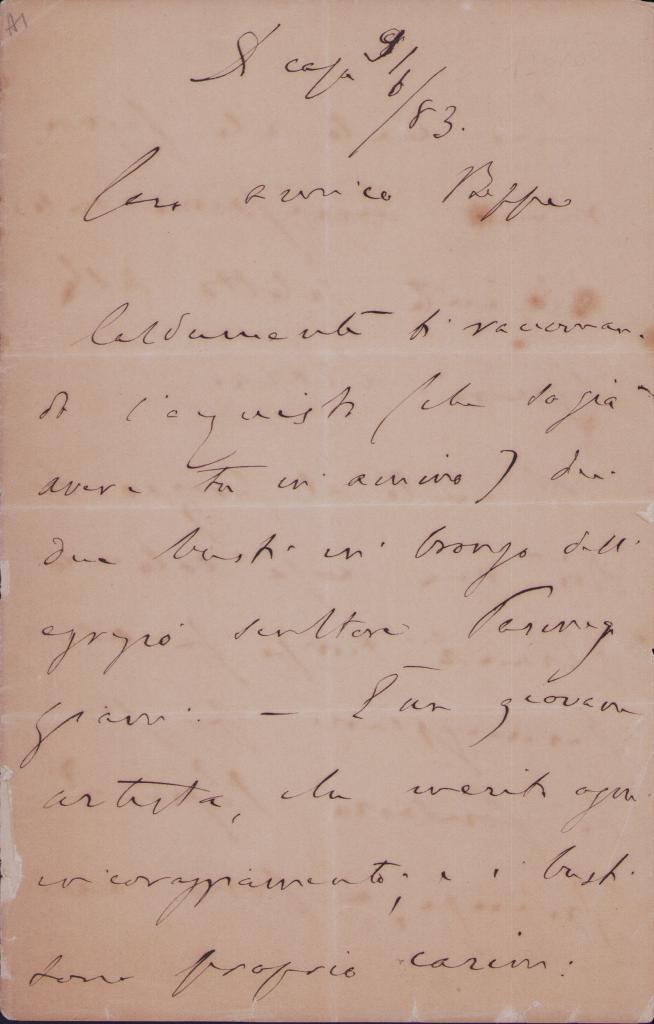 A1
Di casa 9/6/83.
Caro amico Beppe
Caldamente ti raccoman-
do l'acquisto (che so già
avere tu in animo) dei
due busti in bronzo dell'
egregio scultore
giani. — È un giovane
artista, che merita ogni
incoraggiamento; e i busti
sono proprio carini: